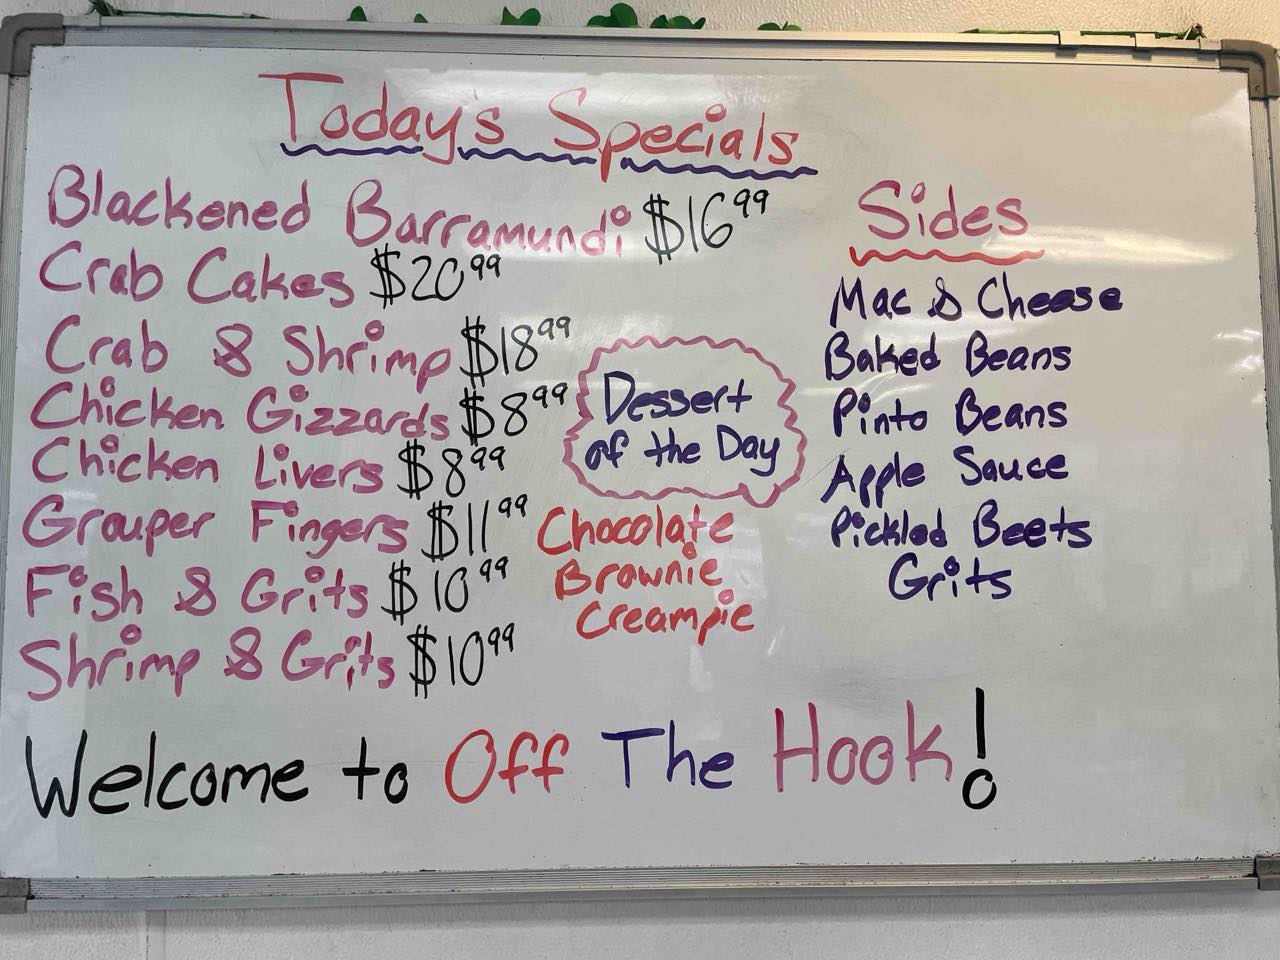 Today's Specials
Blackened Barramundi $16.99
Crab Cakes $20.99
Crab & Shrimp $18.99
Chicken Gizzards $8.99
Chicken Livers $8.99
Grouper Fingers $11.99
Fish & Grits $10.99
Shrimp & Grits $10.99
Dessert
of the Day
Chocolate
Brownie
Creampie
Sides
Mac & Cheese
Baked Beans
Pinto Beans
Apple Sauce
Pickled Beets
Grits
Welcome to Off The Hook!